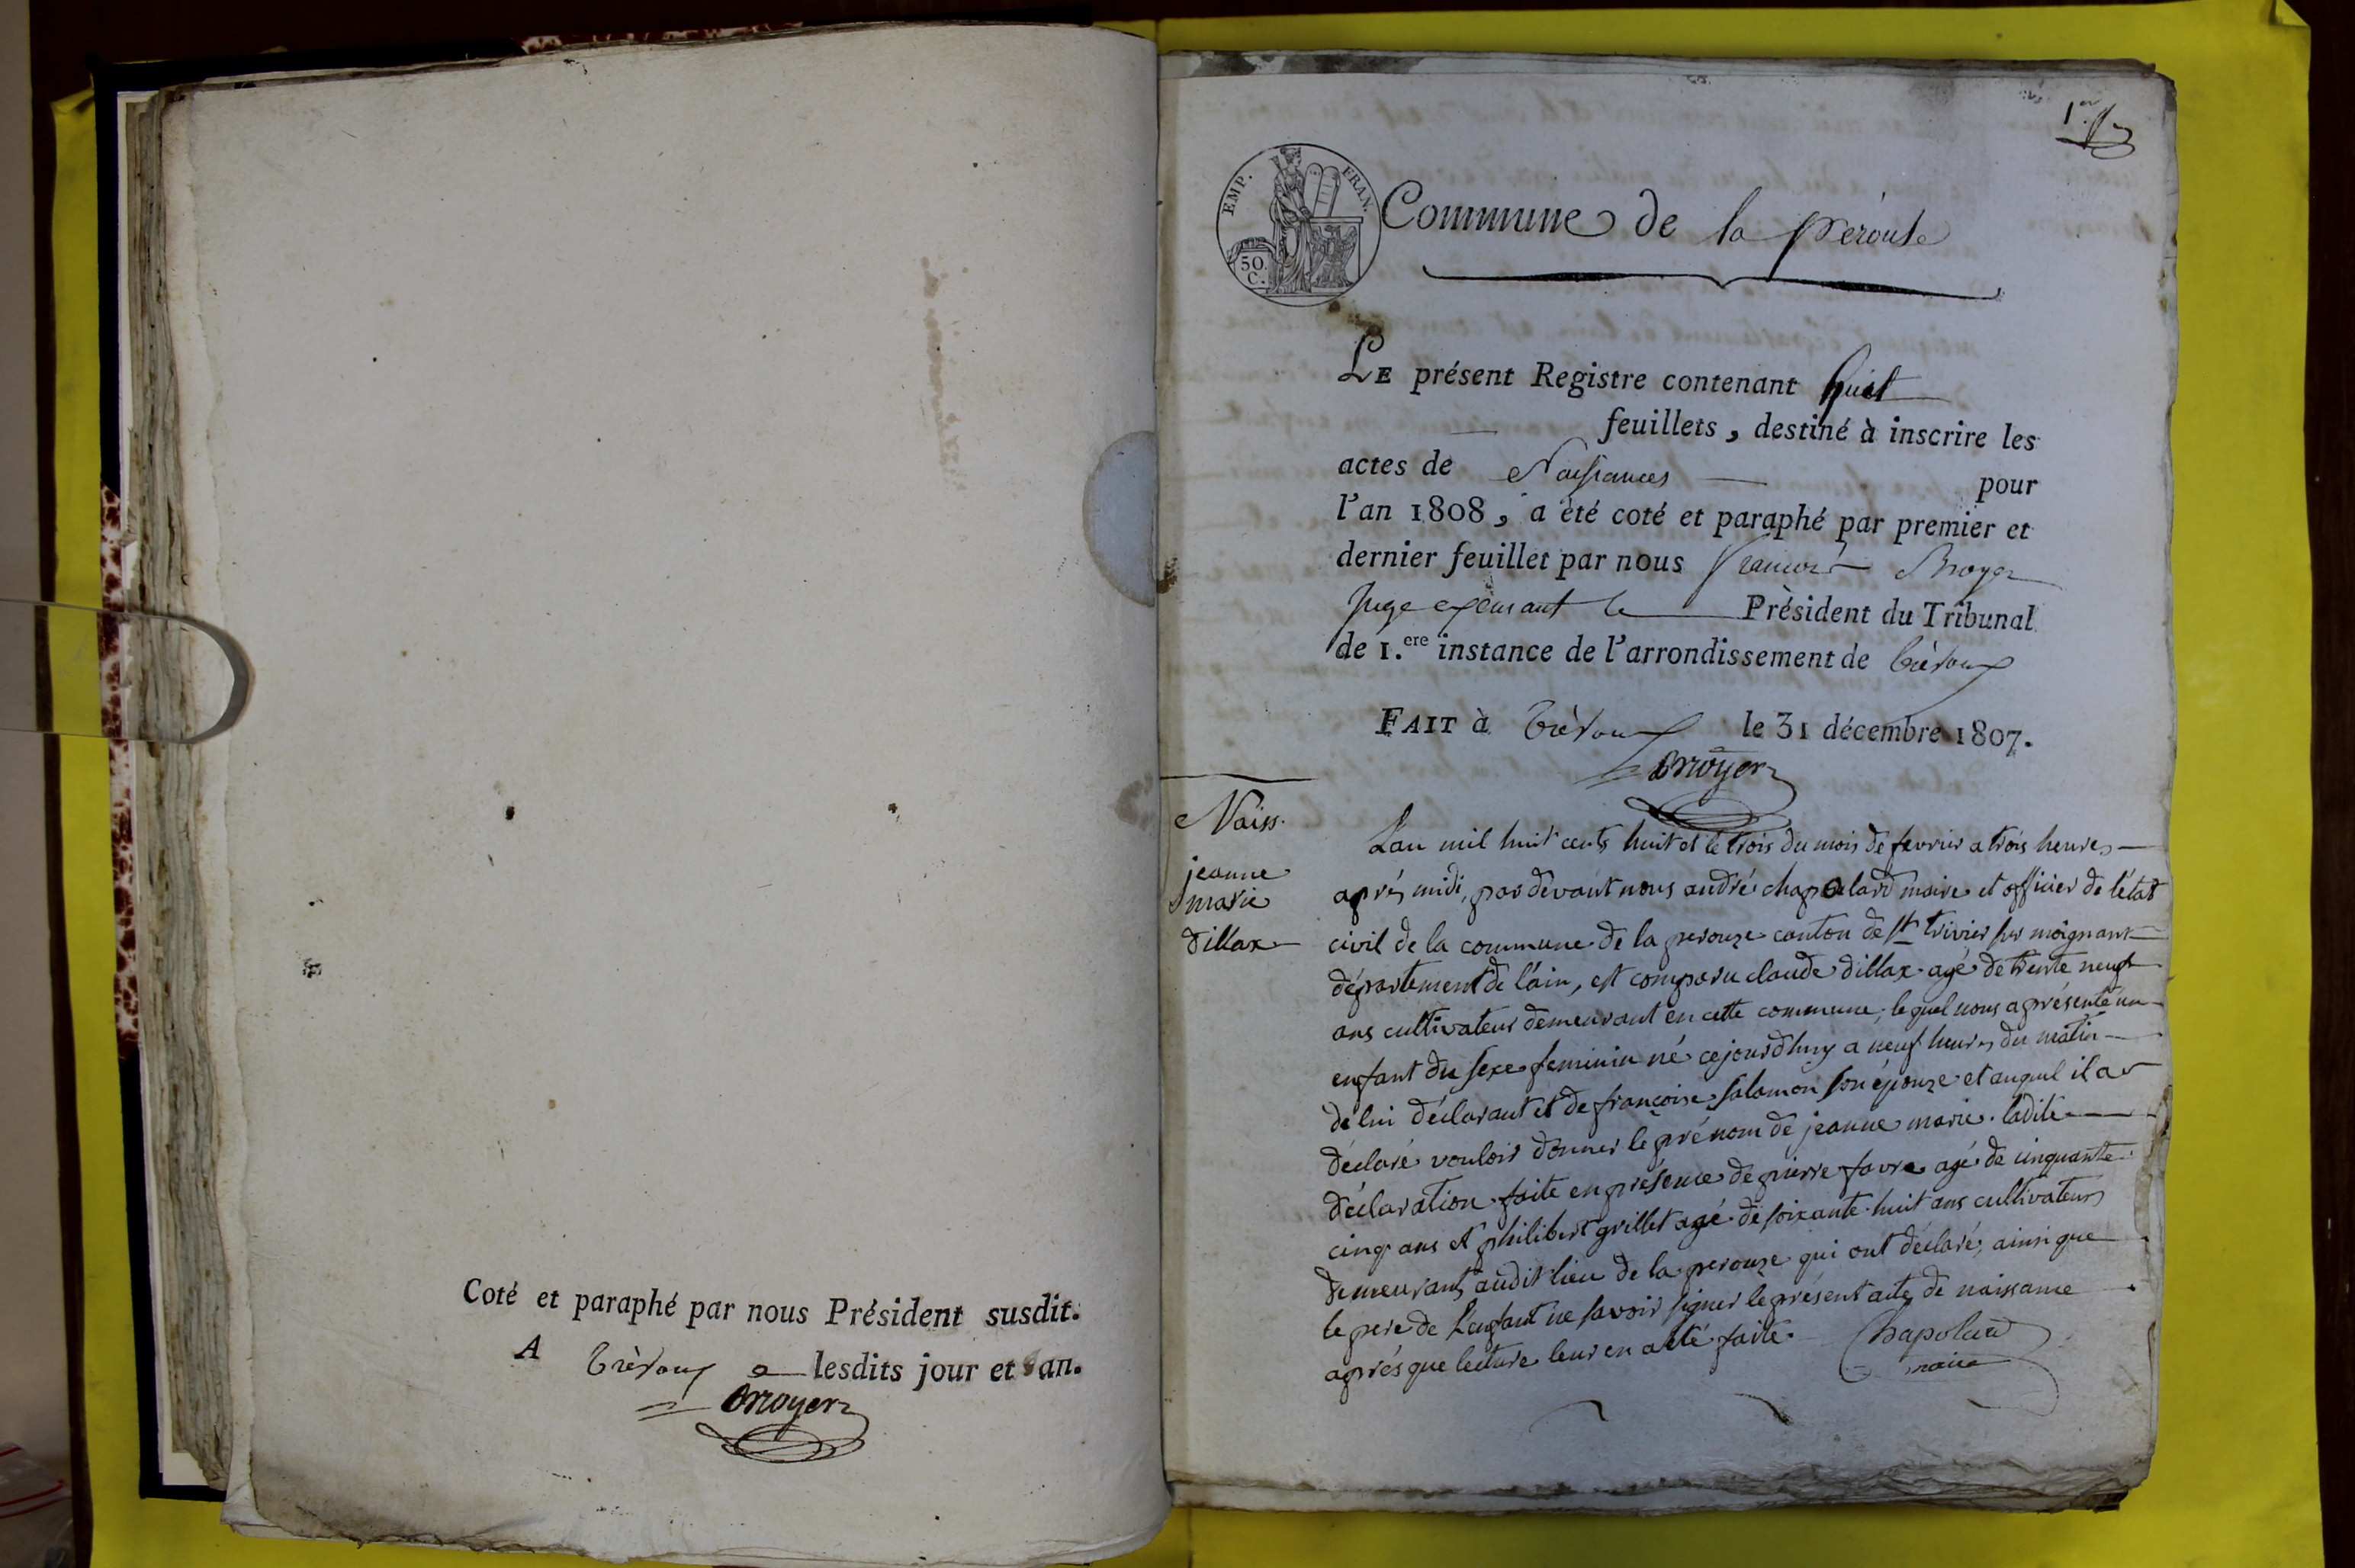 Coté et paraphé par nous Président susdit.
A Trévoux lesdits jour et an.
Broyer
1er
EMP. FRAN.
50 C.
Commune de la pérouse
LE présent Registre contenant huit
feuillets, destiné à inscrire les
actes de Naissances pour
l'an 1808, a été coté et paraphé par premier et
dernier feuillet par nous François Broyer
Juge exerçant le Président du Tribunal
de 1.ere instance de l'arrondissement de Trévoux
FAIT à Trévoux le 31 décembre 1807.
Broyer
Naiss.
jeanne
marie
dillax
L'an mil huit cents huit et le trois du mois de fevrier a trois heures
après midi, par devant nous andré chapolard maire et officier de l'état
civil de la commune de la perouze canton de st trivier sur moignant
département de l'ain, est comparu claude dillax agé de trente neuf
ans cultivateur demeurant en cette commune, lequel nous a présenté un
enfant du sexe feminin né cejourd'huy a neuf heures du matin
de lui déclarant et de françoise salamon son épouze et auquel il a
déclaré vouloir donner le prénom de jeanne marie. ladite
déclaration faite en présence de pierre favre agé de cinquante
cinq ans et philibert grillet agé de soixante huit ans cultivateurs
demeurants audit lieu de la perouze qui ont déclaré, ainsi que
le pere de l'enfant ne savoir signer le présent acte de naissance
après que lecture leur en a été faite. Chapolard
maire